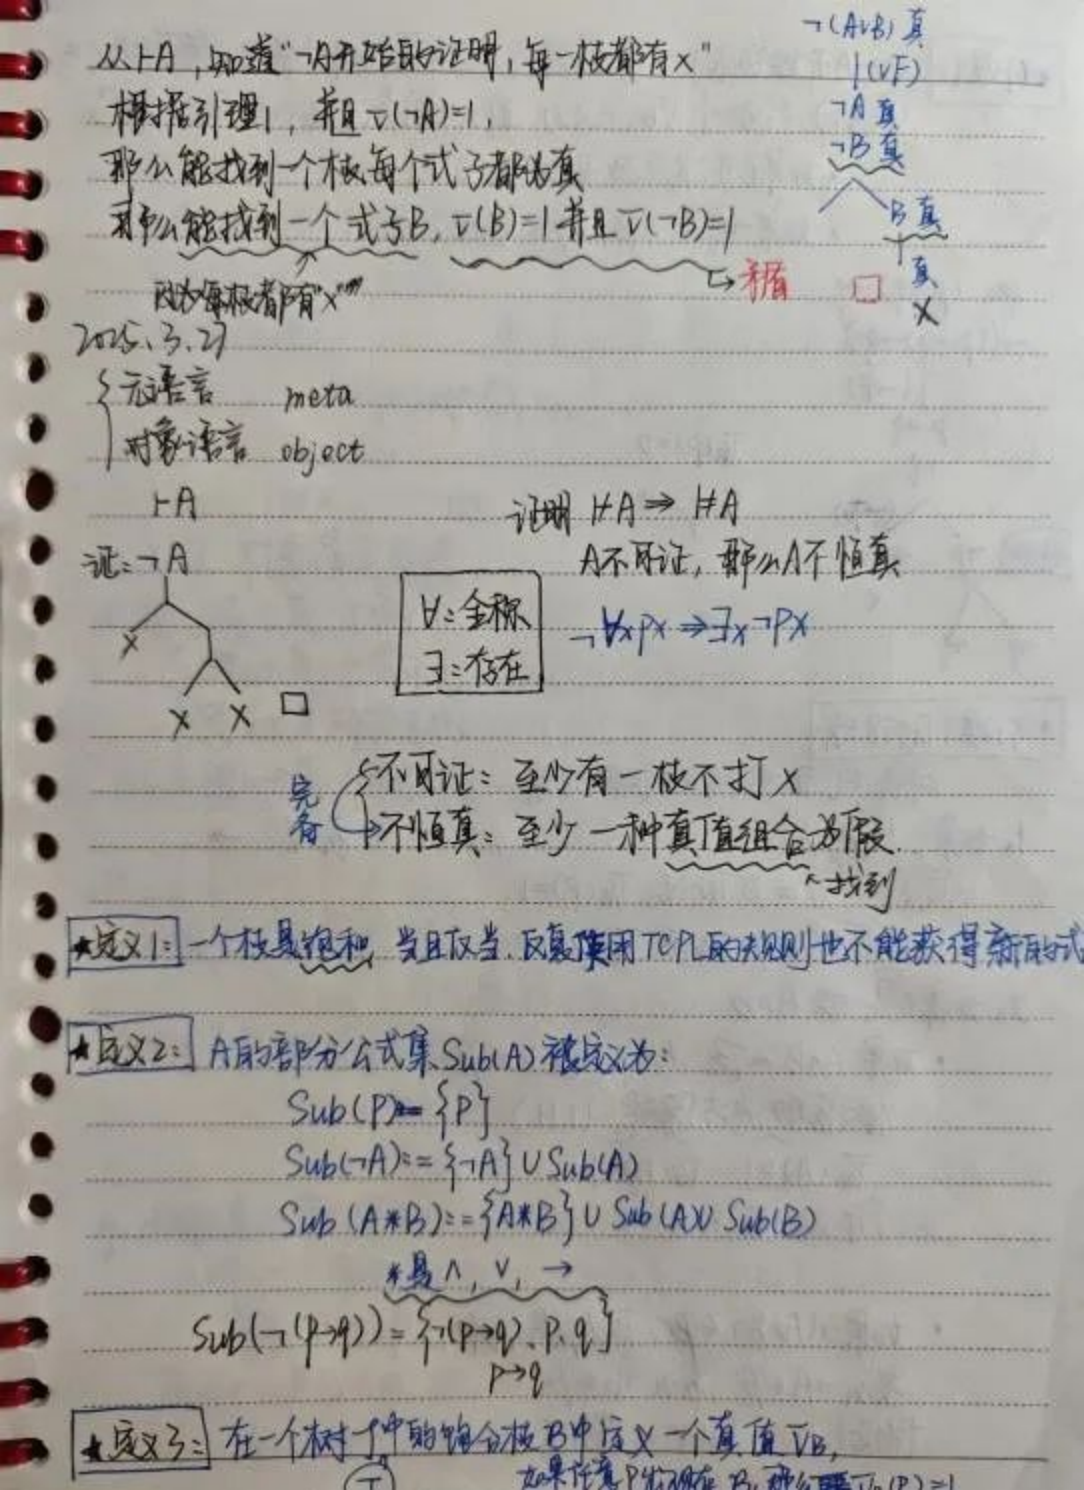 从⊢A,知道"¬A开始的证明,每一枝都有×"
根据引理1,并且v̄(¬A)=1,
那么能找到一个枝每个式子都为真
那么能找到一个式子B,v̄(B)=1并且v̄(¬B)=1
→矛盾 □
因为每枝都有"×"
¬(A∨B) 真
|(∨F)
¬A 真
¬B 真
B 真
真
×
2025.3.27
元语言 meta
对象语言 object
⊢A
证:¬A
× × × □
证明 ⊬A ⇒ ⊭A
A不可证,那么A不恒真
∀:全称
∃:存在
¬∀xPx ⇒ ∃x¬Px
完备
不可证:至少有一枝不打×
不恒真:至少一种真值组合为假.
找到
★定义1: 一个枝是饱和,当且仅当,反复使用TCPL的规则也不能获得新的式
★定义2: A的部分公式集Sub(A)被定义为:
Sub(P)={P}
Sub(¬A):={¬A}∪Sub(A)
Sub(A*B):={A*B}∪Sub(A)∪Sub(B)
*是∧,∨,→
Sub(¬(p→q))={¬(p→q),p,q}
p→q
★定义3: 在一个树T中的饱合枝B中定义一个真值v̄B,
T